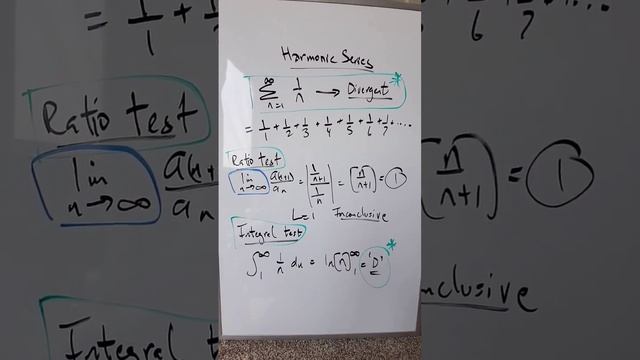 Harmonic Series
∞ ∑ n=1 1/n → Divergent *
= 1/1 + 1/2 + 1/3 + 1/4 + 1/5 + 1/6 + 1/7 + ....
Ratio test
lim n→∞ an+1/an = |1/n+1 / 1/n| = [n/n+1] = 1
L = 1 Inconclusive
Integral test
∫₁^∞ 1/n dn = ln[n]₁^∞ = 'D' *